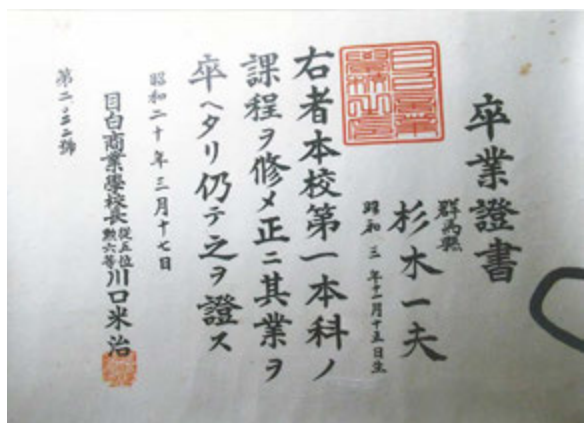 卒業證書
群馬縣
杉木一夫
昭和三年十一月十五日生
右者本校第一本科ノ
課程ヲ修メ正ニ其業ヲ
卒ヘタリ仍テ之ヲ證ス
昭和二十年三月十七日
目白商業學校長從五位勲六等川口米治